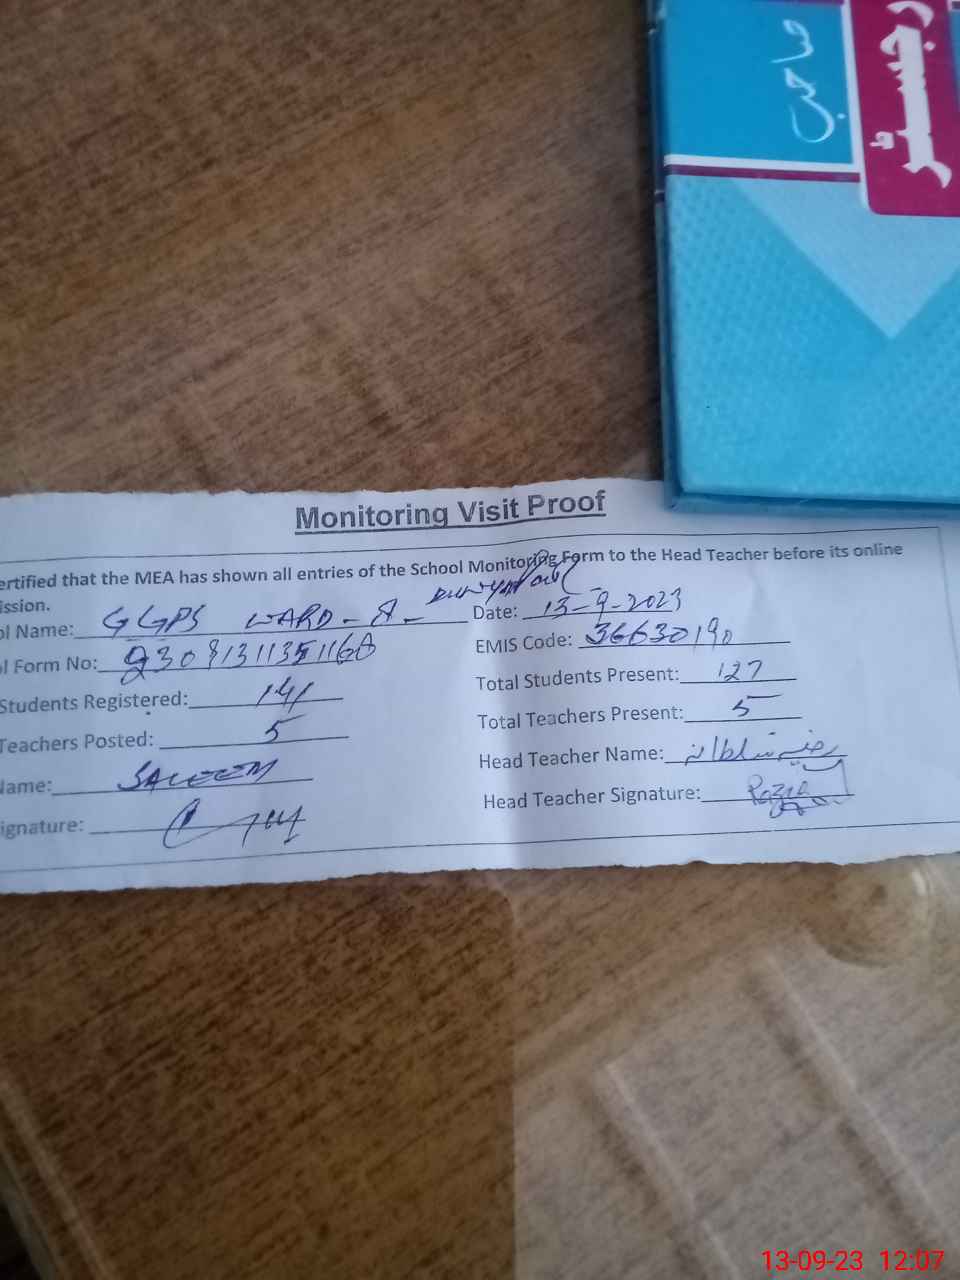 صاحب
رجسٹر
Monitoring Visit Proof
ertified that the MEA has shown all entries of the School Monitoring Form to the Head Teacher before its online
ission.
ol Name: GGPS WARD-8- Date: 13-9-2023
l Form No: EMIS Code: 36630190
Students Registered: 141 Total Students Present: 127
Teachers Posted: 5 Total Teachers Present: 5
Name: SALEEM Head Teacher Name: رضیہ سلطانہ
ignature: Head Teacher Signature: Razia
13-09-23 12:07